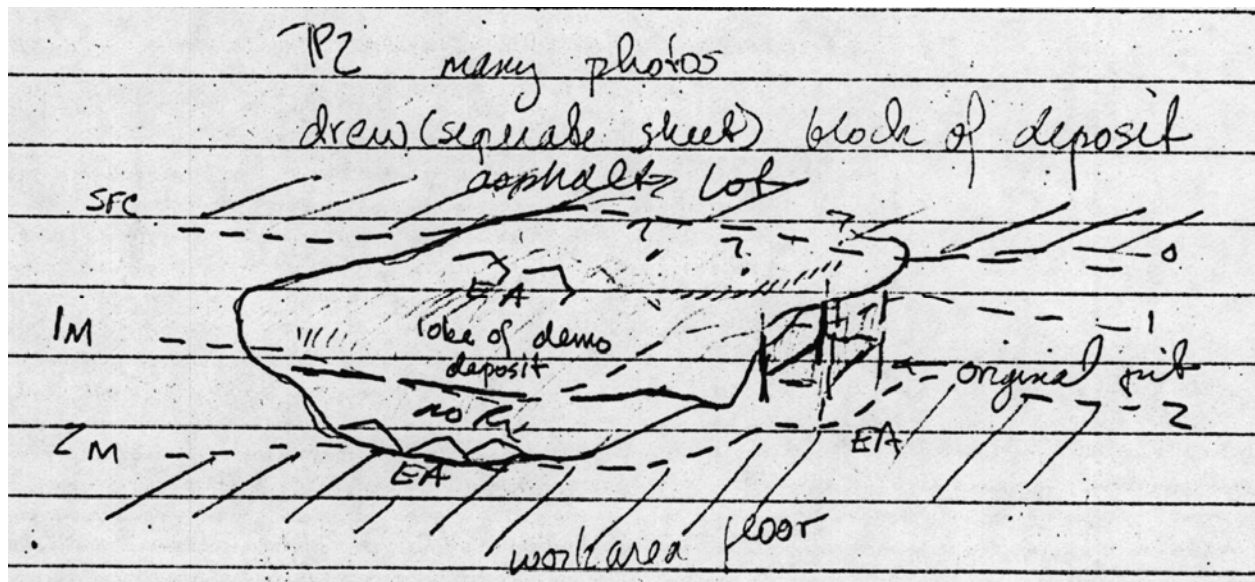 TP2 many photos
drew (separate sheet) block of deposit
asphalt lot
SFC
? ? ?
0
EA
1M
lobe of demo
deposit
1
original pit
no
2
2M
EA
EA
work area floor